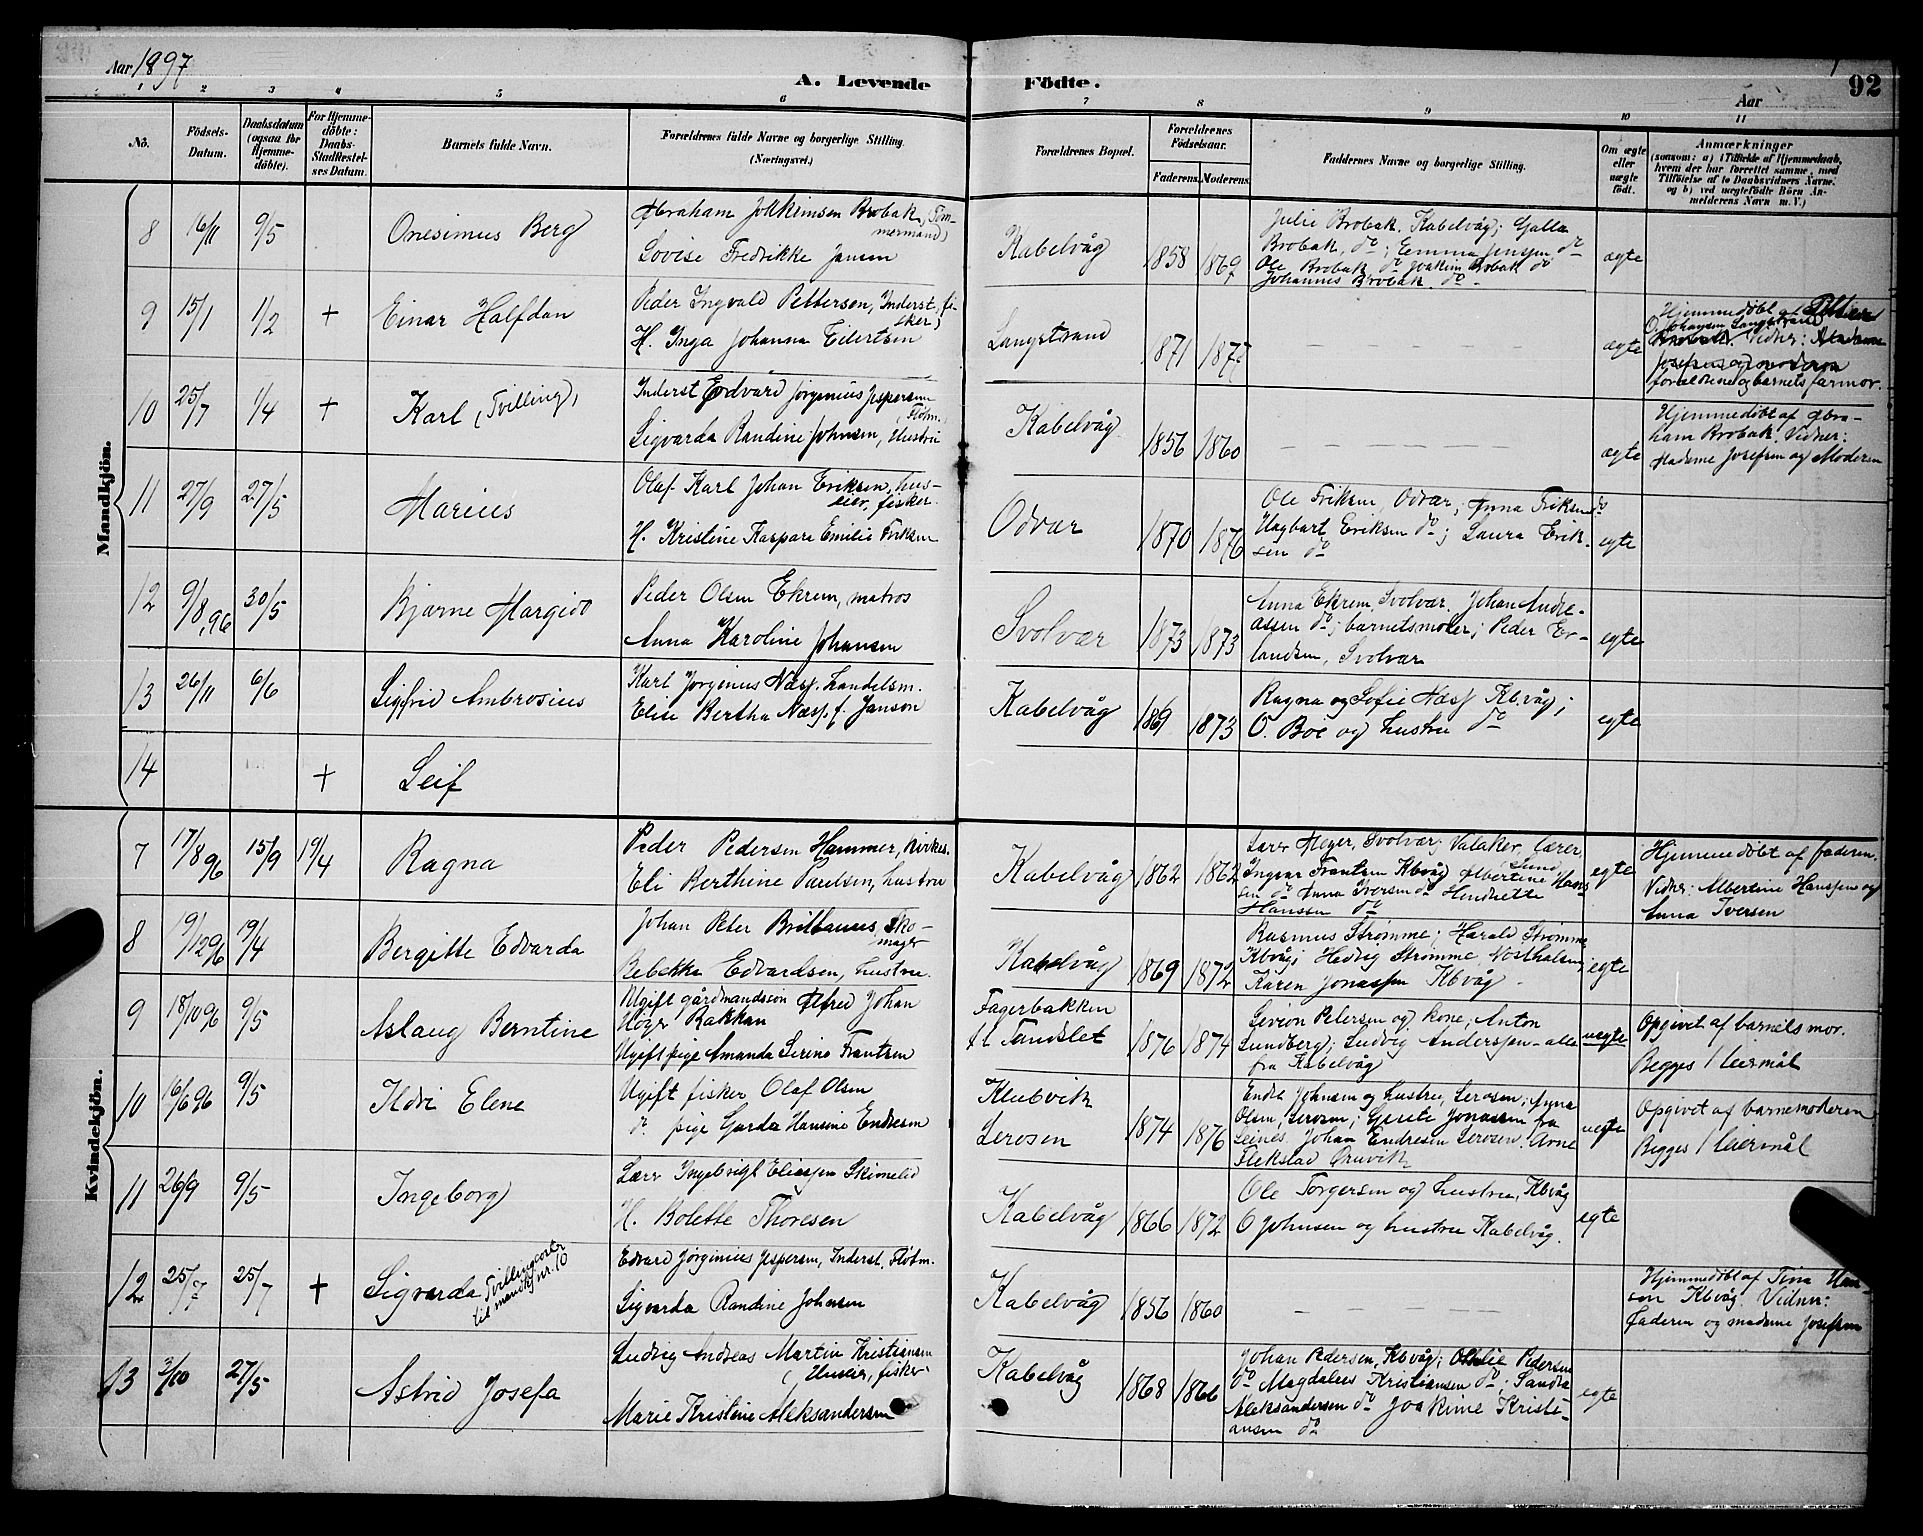 Aar 1897
A. Levende Födte.
Aar
92
1 2 3 4 5 6 7 8 9 10 11
No.
Födsels-Datum.
Daabsdatum (ogsaa for Hjemme-döbte).
For Hjemme-döbte: Daabs-Stadfæstel-ses Datum.
Barnets fulde Navn.
Forældrenes fulde Navne og borgerlige Stilling. (Næringsvei.)
Forældrenes Bopæl.
Forældrenes Födselsaar.
Faderens. Moderens.
Faddernes Navne og borgerlige Stilling.
Om ægte eller uægte födt.
Anmærkninger
(saasom: a) i Tilfælde af Hjemmedaab,
hvem der har forrettet samme, med
Tilföielse af to Daabsvidners Navne.
og b) ved uægtefödte Börn An-
melderens Navn m. V.)
Mandkjön.
8 16/11 9/5 Onesimus Berg
Abraham Joakimsen Brobak, (Töm-
mermand)
Lovise Fredrikke Jansen
Kabelvåg 1858 1869
Julie Brobak, Kabelvåg; Galla
Brobak, do; Emma Jenssen do
Ole Brobak do Joakim Brobak do
Johannes Brobak do
ægte
9 15/1 1/2 + Einar Halfdan
Peder Ingvald Pettersen, Inderst, fi-
sker)
H. Inga Johanna Eilertsen
Langstrand 1871 1877 — — — — — ægte
Hjemmedöbt af
O. Johansen Langstrand
Vidner: Madame
Josefsen og moderen
forældrene og barnets farmor.
10 25/7 1/4 + Karl (Tvilling)
Inderst Edvard Jörginius Jespersen
Flöhm.
Sigvarda Randine Johnsen, Hustru
Kabelvåg 1856 1860 — — — — ægte
Hjemmedöbt af Abra-
ham Brobak. Vidner:
Madame Josefsen og Moderen
11 27/9 27/5 Marius
Olaf Karl Johan Eriksen, hus-
eier, fisker.
H. Kristine Kaspara Emilie Eriksen
Odvær 1870 1876
Ole Eriksen, Odvær, Anna Eriksen do
Hagbart Eriksen do; Laura Erik-
sen do
egte
12 9/8,96 30/5 Bjarne Margido
Peder Olsen Ekrem, matros
Anna Karoline Johansen
Svolvær 1873 1873
Anna Ekrem, Svolvær. Johan Andre-
assen do; barnetsmoder; Peder Er-
landsen, Svolvær
egte
13 26/11 6/6 Sigfrid Ambrosius
Karl Jörginus Næss, handelsm.
Elise Bertha Næss f. Janson
Kabelvåg 1869 1873
Ragna og Sofie Næss Kbvåg;
O. Böe og hustru do
egte
14 + Leif
Kvindekjön.
7 17/8 96 15/9 19/4 Ragna
Peder Pedersen Hammer, kirkes.
Eli Berthine Paulsen, hustru
Kabelvåg 1862 1862
Lærer Meyer, Svolvær; Valaker, lærer,
Ingvar Frantzen Kbvåg Albertine Hans-
sen do Anna Iversen do Hendrette
Hanssen do
egte
Hjemmedöbt af faderen.
Vidner: Albertine Hanssen og
Anna Iversen
8 19/12 96 19/4 Bergitte Edvarda
Johan Peter Britbaues, sko-
mager
Rebekka Edvardsen, hustru.
Kabelvåg 1869 1872
Rasmus Strømme; Harald Strømme
Kbvåg; Hedvig Strømme, Vosthalsen;
Karen Jonassen Kbvåg.
egte
9 18/10 96 9/5 Aslaug Berntine
Ugift gårdmandssön Alfred Johan
Höyer Bakken
Ugift pige Amanda Serine Frantzen
Fagerbakken
Tandslet 1876 1874
Sivion Petersen og kone; Anton
Lundberg; Ludvig Anderssen – alle
fra Kabelvåg
uegte
Opgivet af barnets mor.
Begges 1 leiermål
10 16/6 96 9/5 Ildri Elene
Ugift fisker Olaf Olsen
do pige Garda Hansine Endresen
Klubvik
Lerosen 1874 1876
Endre Johnsen og hustru, Lerosen; Anna
Olsen, Lerosen; Grete Jonassen fra
Leines. Johan Endresen Lerosen. Arne
Flekstad Ørsvik
uegte
Opgivet af barnemoderen
Begges 1 leiermål
11 26/9 9/5 Ingeborg
Lærer Ingebrigt Eliassen Skjomelid
H. Bolette Thoresen
Kabelvåg 1866 1872
Ole Torgersen og hustru, Kbvåg
O Johnsen og hustru Kabelvåg.
egte
12 25/7 25/7 + Sigvarda Tvillingsöster
til mandkj nr. 10
Edvard Jörginius Jespersen, Inderst, Flöhm.
Sigvarda Randine Johnsen
Kabelvåg 1856 1860 — — — —
Hjemmedöbt af Tina Han-
sen Kbvåg. Vidner:
Faderen og madame Josefsen
13 3/10 27/5 Astrid Josefa
Ludvig Andreas Martin Kristiansen
(Huseier, fisker)
Marie Kristine Aleksandersen
Kabelvåg 1868 1866
Johan Pedersen, Kbvåg; Othilie Pedersen
do Magdalene Kristiansen do; Sandra
Aleksandersen do Joakime Kristi-
ansen do
egte